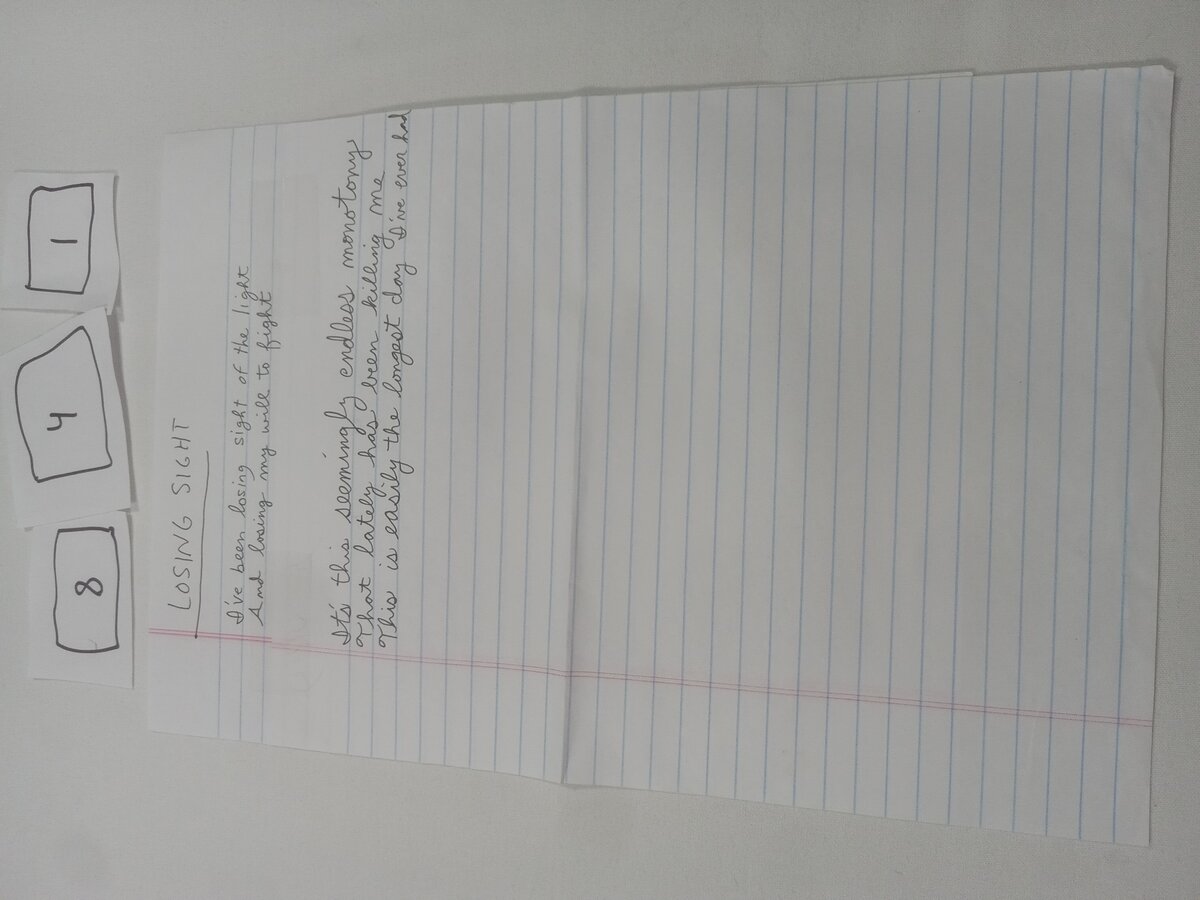 8 4 1
LOSING SIGHT
I've been losing sight of the light
And losing my will to fight
It's this seemingly endless monotony
That lately has been killing me
This is easily the longest day I've ever had